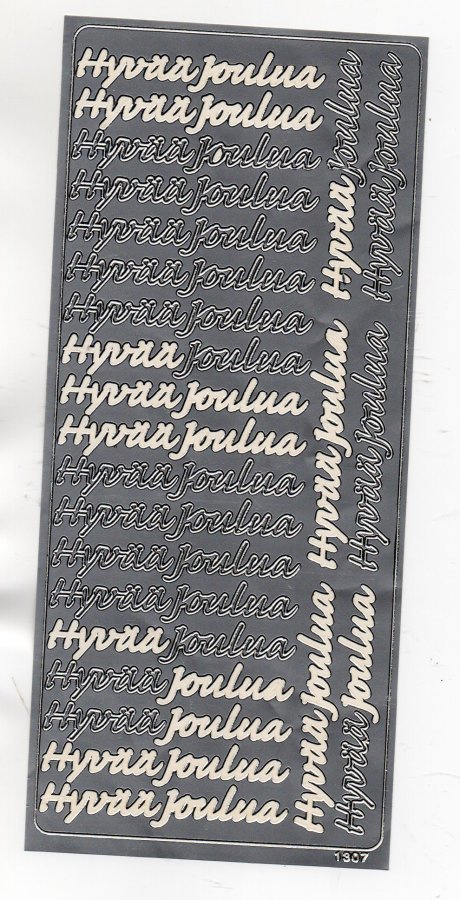 Hyvää Joulua
Hyvää Joulua
Hyvää Joulua
Hyvää Joulua
Hyvää Joulua
Hyvää Joulua
Hyvää Joulua
Hyvää Joulua
Hyvää Joulua
Hyvää Joulua
Hyvää Joulua
Hyvää Joulua
Hyvää Joulua
Hyvää Joulua
Hyvää Joulua
Hyvää Joulua
Hyvää Joulua
Hyvää Joulua
Hyvää Joulua
Hyvää Joulua
Hyvää Joulua
Hyvää Joulua
Hyvää Joulua
Hyvää Joulua
Hyvää Joulua
1307